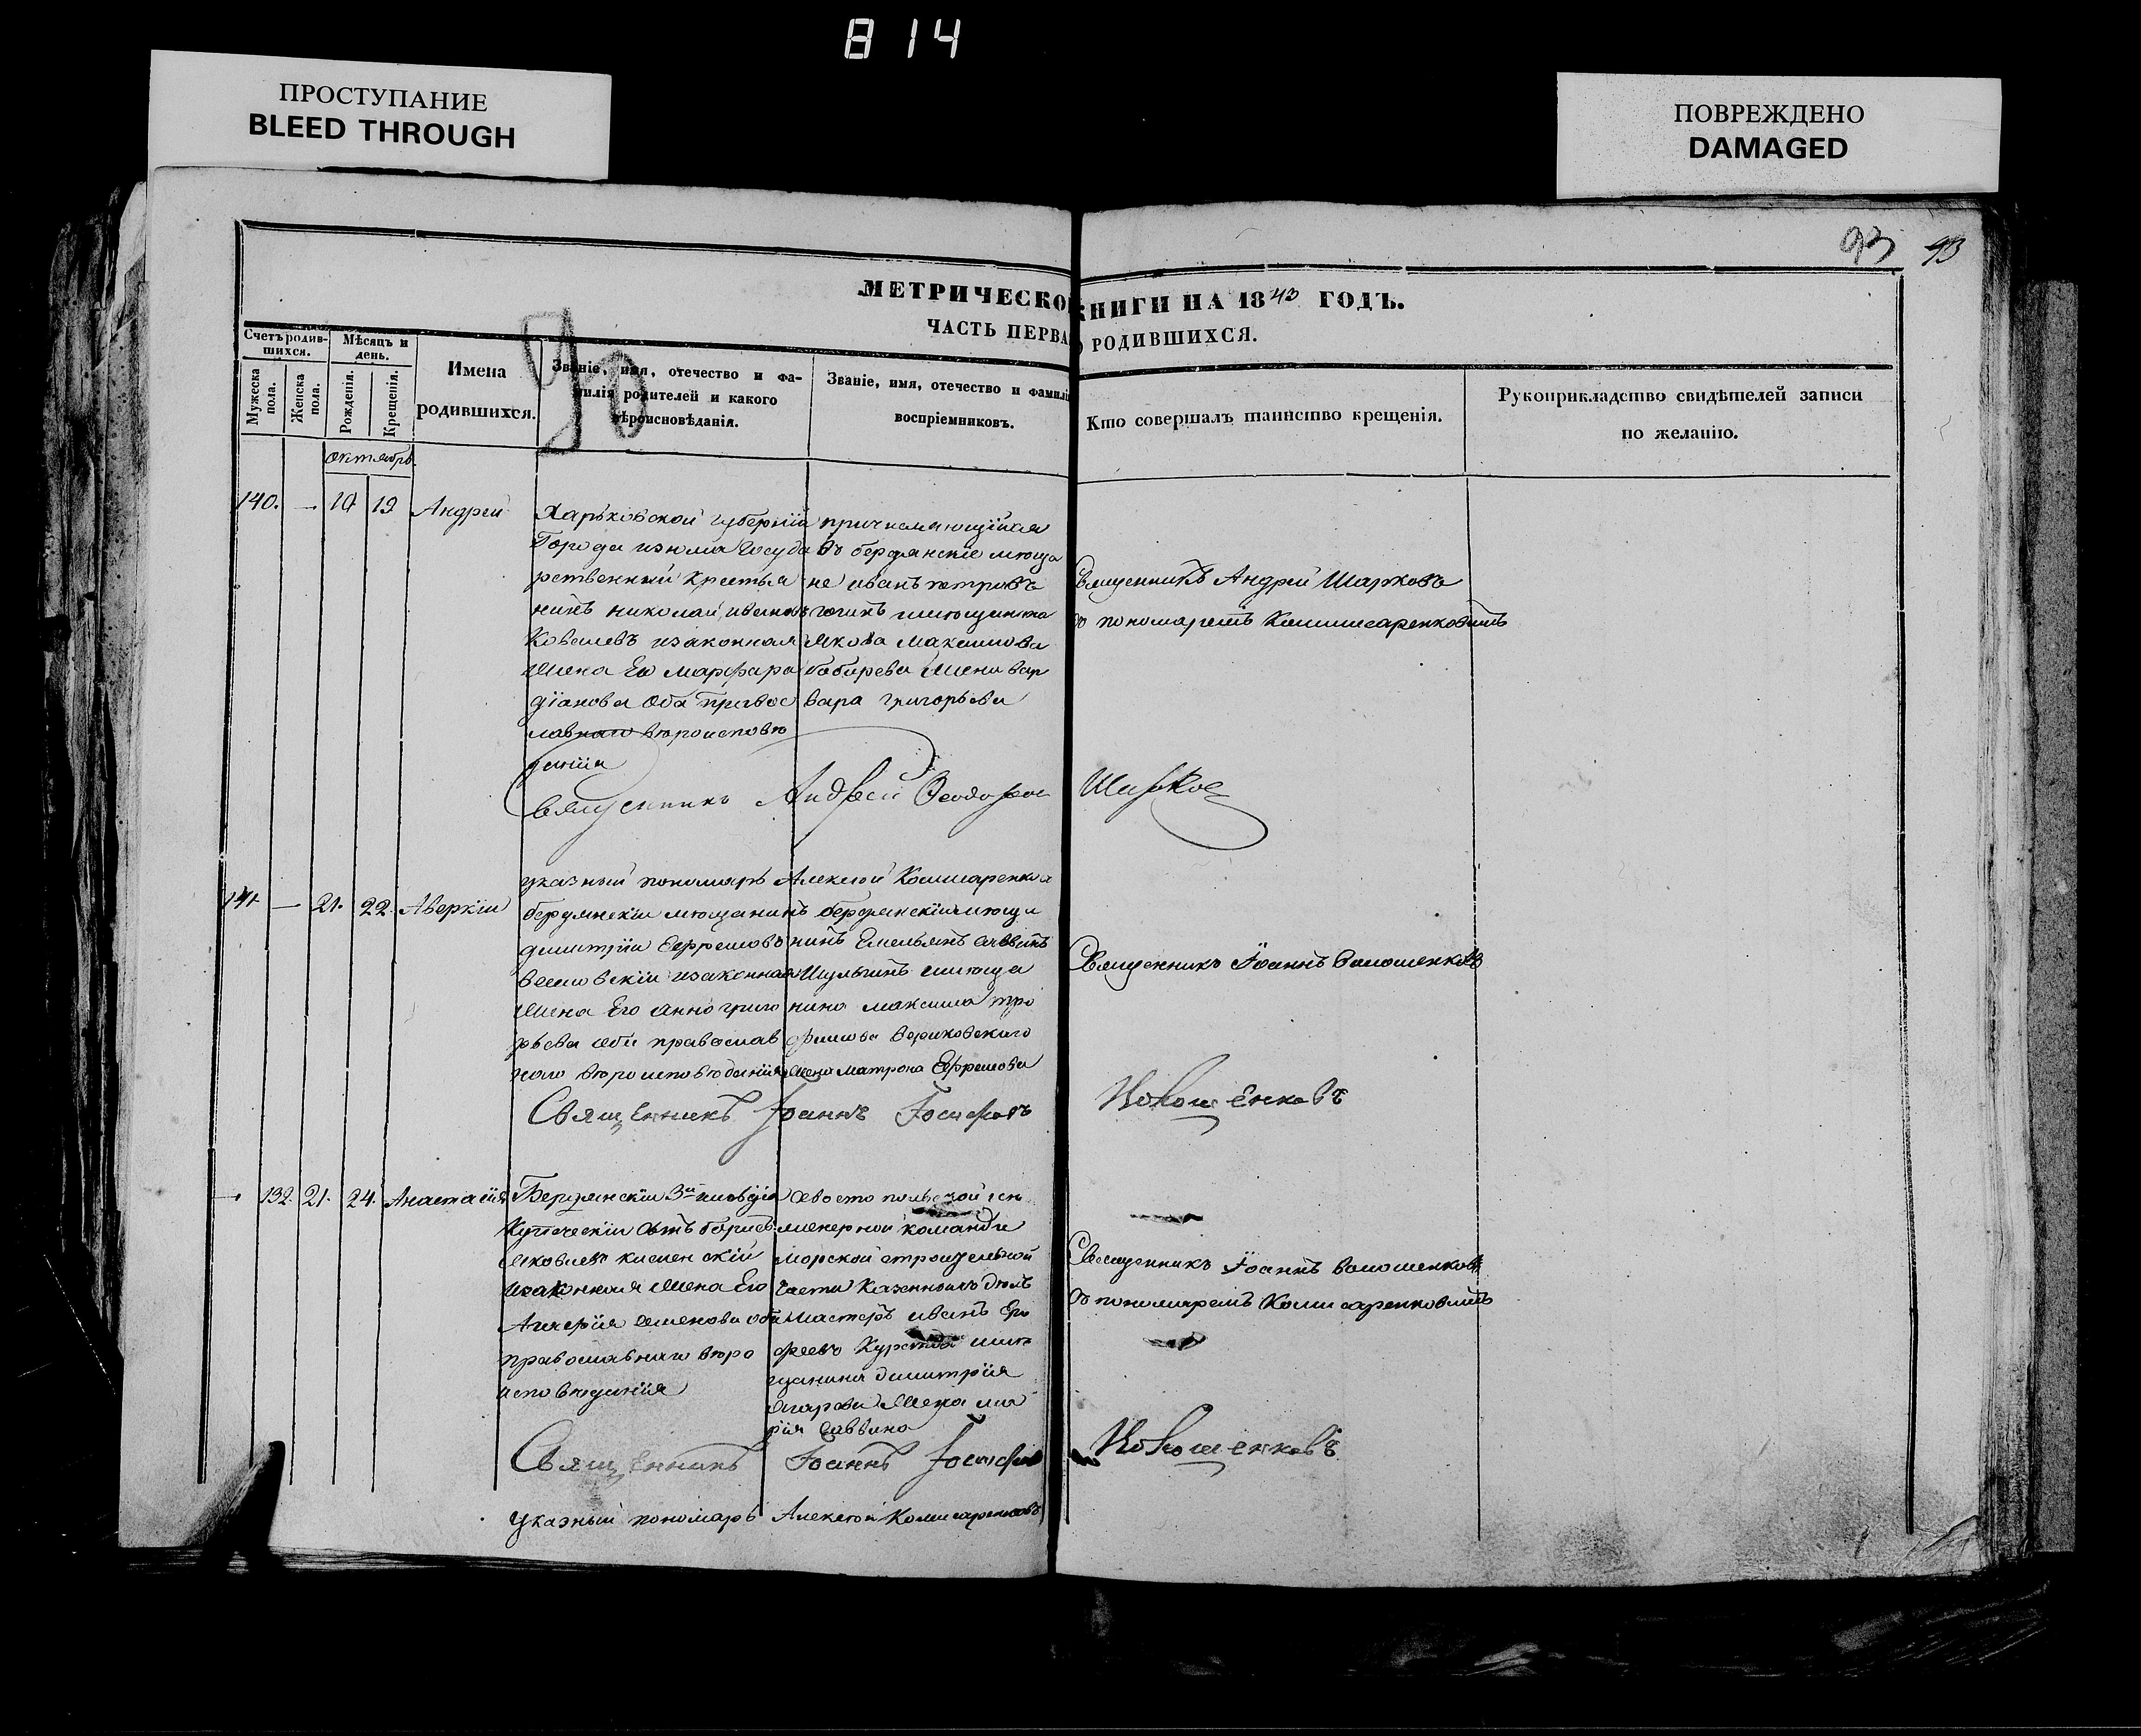 814
ПРОСТУПАНИЕ
BLEED THROUGH
ПОВРЕЖДЕНО
DAMAGED
93 93
МЕТРИЧЕСКО КНИГИ НА 1843 ГОДЪ.
ЧАСТЬ ПЕРВА О РОДИВШИХСЯ.
Счетъ родив-
шихся.
Мужеска пола.
Женска пола.
Мѣсяцъ и
день.
Рожденія.
Крещенія.
Имена
родившихся.
Званіе, имя, отечество и фа-
милія родителей и какого
вѣроисновѣданія.
Званіе, имя, отечество и фамилі
воспріемниковъ.
Кто совершалъ таинство крещенія.
Рукоприкладство свидѣтелей записи
по желанію.
октябрь
140. — 19 Андрей
Харьковской губерніи
Города изюма Госуда
рственный крестья
нинъ николай ивановъ
Ковалевъ изаконная
жена Его марфа
діанова оба правос
лавнаго вѣроисповѣ
данія
причисляющійся
въ бердянскіе мѣща
не иванъ петровъ
имѣщанина
Якова Максимова
бабырева жена вар
вара григорьева
Священникъ Андрей Шарковъ
съ пономаремъ Коммисаренковымъ
Священникъ Андрей Феодоров Шарков
указный пономарь Алексѣй Комисаренков
141. — 21. 22. Аверкій
бердянскій мѣщанинъ
димитрій Ефремовъ
изаконная
жена Его анна григо
рьева оба православ
наго вѣроисповѣданія
бердянскій мѣща
нинъ Емельянъ саввинъ
Шульгинъ имѣща
нина максима тро
фимова
жена матрона Ефремова
Священникъ Іоаннъ Волошенковъ
Священникъ Іоаннъ Іосифовъ Волошенковъ
— 132. 21. 24. Анастасія
Бердянскій 3й гильдіи
Купеческій сынъ борисъ
Яковлевъ
изаконная жена Его
Агафія семенова оба
православнаго вѣро
исповѣданія
севастопольской ін
женерной команды
морской строительной
части Казенныхъ дѣлъ
мастеръ иванъ Еро
феевъ Курска мѣ
щанина димитрія
жена ма
рія саввина
Священникъ Іоаннъ волошенковъ
съ пономаремъ Комисаренковымъ
Священникъ Іоаннъ Іосифов Волошенковъ
указный пономарь Алексѣй Комисаренковъ